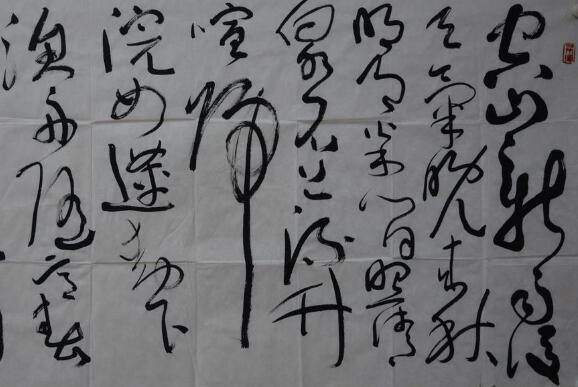 空山新雨後
天氣晚來秋
明月松間照清
泉石上流竹
喧歸
浣女蓮動下
漁舟隨意春